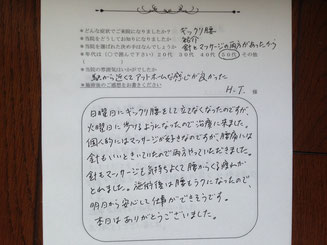 ●どんな症状でご来院になりましたか ギックリ腰
●当院をどうしてお知りになりましたか 紹介
●当院を選ばれた決め手はなんでしょうか 針とマッサージの両方があったから
●年代は（○で囲んで下さい）20代 30代 40代 50代 その他
（ ）
●当院の雰囲気はいかがでしたか
駅から近くてアットホームな感じが良かった
●施術後のご感想をお書きください H.T. 様
日曜日にギックリ腰をして立てなくなったのですが、
火曜日に歩けるようになったので治療に来ました。
個人的にはマッサージが好きなのですが、腰痛には
針もいいときいていたので両方やっていただきました。
針もマッサージも気持ちよくて腰からくる疲れが
とれました。施術後は腰もラクになったので、
明日から安心して仕事ができそうです。
本日はありがとうございました。